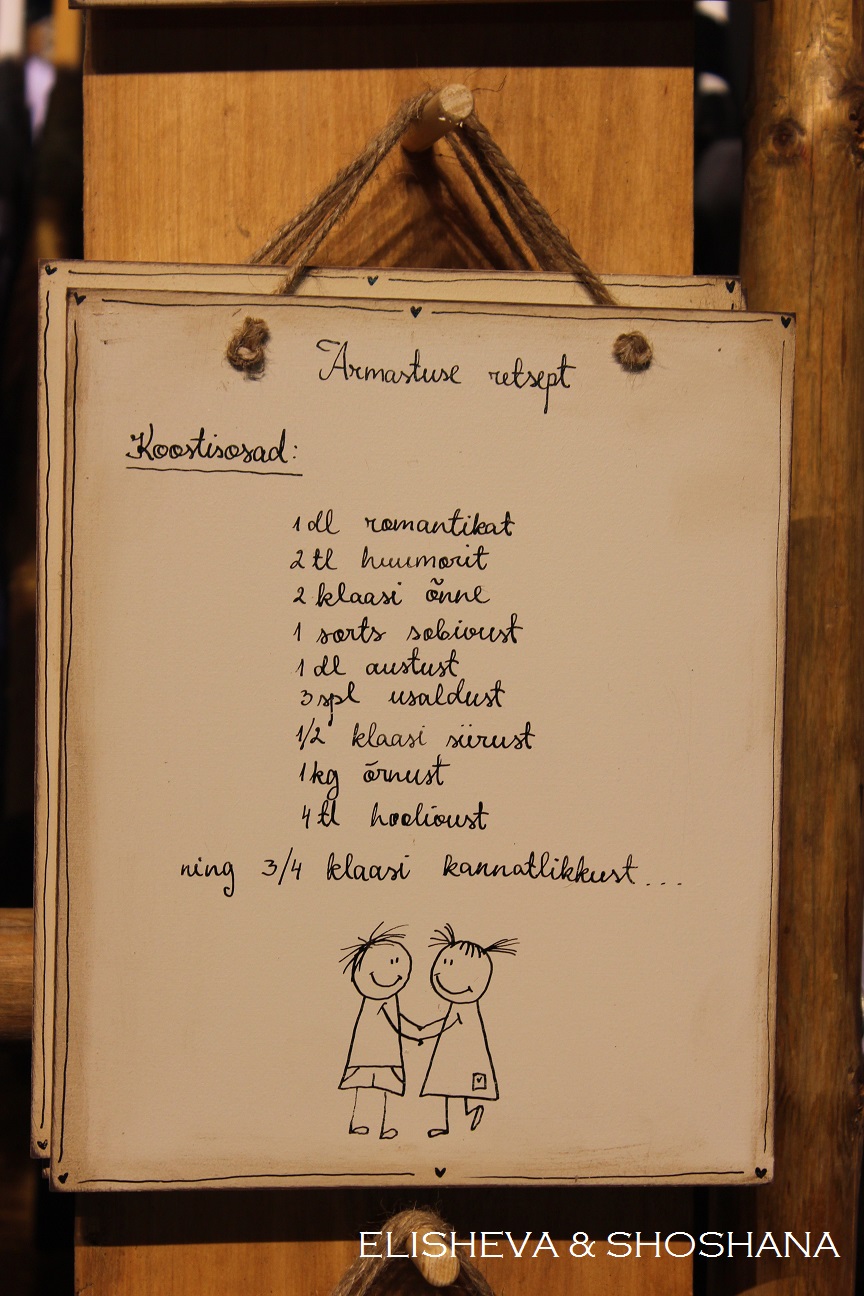 Armastuse retsept
Koostisosad:
1 dl romantikat
2 tl huumorit
2 klaasi õnne
1 sorts sobivust
1 dl austust
3 spl usaldust
1/2 klaasi siirust
1 kg õrnust
4 tl hoolivust
ning 3/4 klaasi kannatlikkust...
ELISHEVA & SHOSHANA